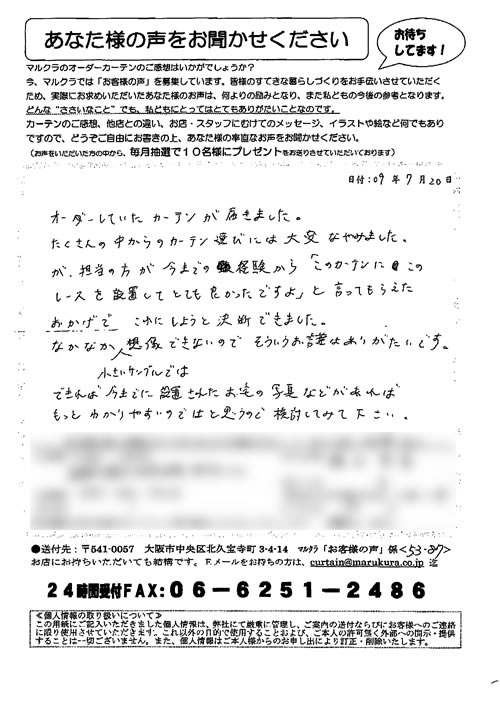 あなた様の声をお聞かせください
お待ち
してます!
マルクラのオーダーカーテンのご感想はいかがでしょうか?
今、マルクラでは「お客様の声」を募集しています。皆様のすてきな暮らしづくりをお手伝いさせていただく
ため、実際にお求めいただいたあなた様のお声は、何よりの励みとなり、また私どもの今後の参考となります。
どんな“ささいなこと”でも、私どもにとってはとてもありがたいことなのです。
カーテンのご感想、他店との違い、お店・スタッフにむけてのメッセージ、イラストや絵など何でもあり
ですので、どうぞご自由にお書きの上、あなた様の率直なお声をお聞かせください。
(お声をいただいた方の中から、毎月抽選で10名様にプレゼントをお送りさせていただいております)
日付:09年7月20日
オーダーしていたカーテンが届きました。
たくさんの中からのカーテン選びには大変なやみました。
が、担当の方が今までの経験から「このカーテンにこの
レースを設置してとても良かったですよ」と言ってもらえた
おかげでこれにしようと決断できました。
なかなか想像できないのでそういうお言葉はありがたいです。
小さいサンプルでは
できれば今までに設置されたお宅の写真などがあれば
もっとわかりやすいのではと思うので検討してみて下さい。
●送付先:〒541-0057 大阪市中央区北久宝寺町3-4-14 マルクラ「お客様の声」係<53-37>
お店にお持ちいただいても結構です。Eメールをお持ちの方は、curtain@marukura.co.jp 迄
24時間受付FAX:06-6251-2486
≪個人情報の取り扱いについて≫
この用紙にご記入いただきました個人情報は、弊社にて厳重に管理し、ご案内の送付ならびにお客様へのご連絡
に限り使用させていただきます。これ以外の目的で使用することおよび、ご本人の許可無く外部への開示・提供
することは一切ございません。また、個人情報はご本人様からのお申し出により訂正・削除いたします。